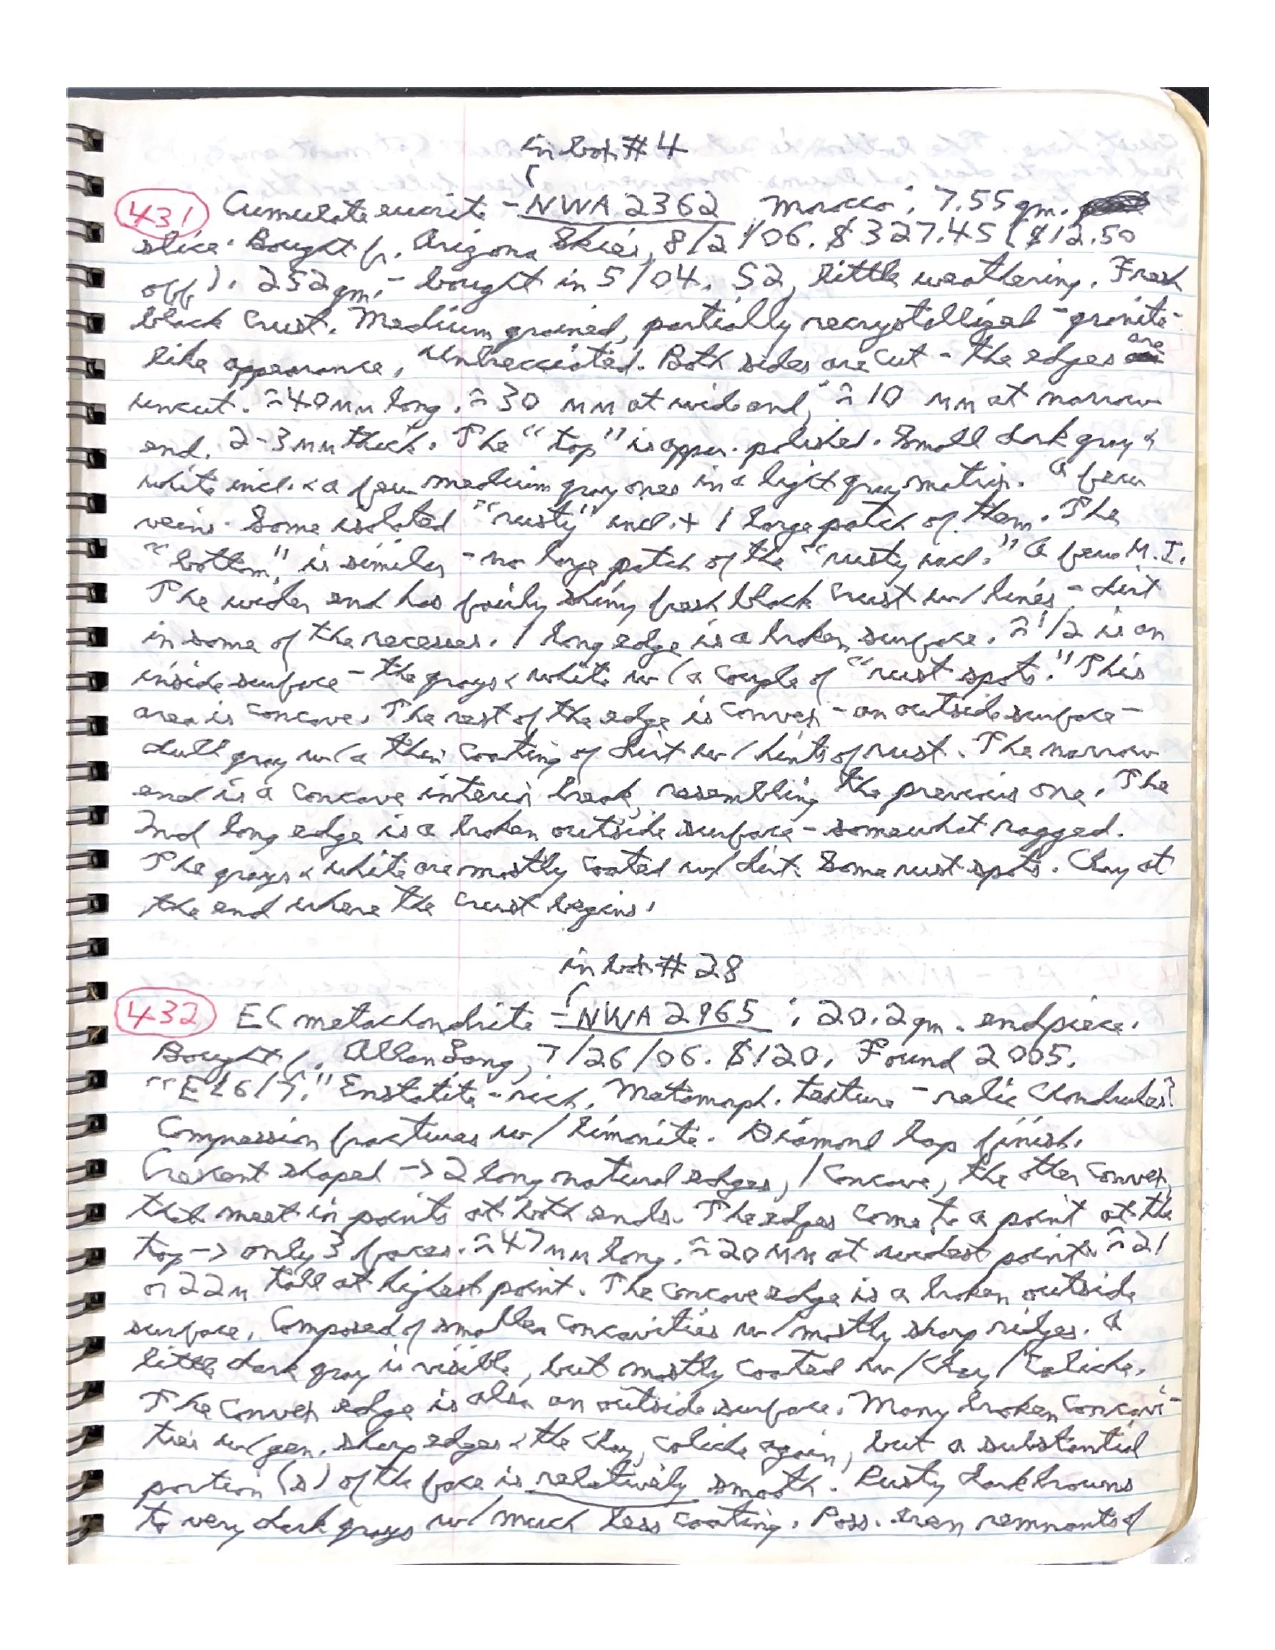 in box #4
431 Cumulate eucrite - NWA 2362 Morocco; 7.55 gm.
slice. Bought fr. Arizona Skies, 8/2/06. $327.45 ($12.50
off). 252 gm. - bought in 5/04. S2, little weathering. Fresh
black crust. Medium grained, partially recrystallized - granite-
like appearance, unbrecciated. Both sides are cut - the edges are
uncut. ≈40 mm long. ≈30 mm at wide end, ≈10 mm at narrow
end. 2-3 mm thick. The "top" is appar. polished. Small dark gray &
white incl. & a few medium gray ones in a light gray matrix. A few
veins. Some isolated "rusty" incl. + 1 large patch of them. The
"bottom" is similar - no large patch of the "rusty incl." A few M.I.
The wider end has fairly shiny fresh black crust w/ lines - dirt
in some of the recesses. 1 long edge is a broken surface. ≈1/2 is an
inside surface - the grays & white w/ a couple of "rust spots." This
area is concave. The rest of the edge is convex - an outside surface -
dull gray w/ a thin coating of dirt w/ hints of rust. The narrow
end is a concave interior break, resembling the previous one. The
2nd long edge is a broken outside surface - somewhat ragged.
The grays & white are mostly coated w/ dirt. Some rust spots. Clay at
the end where the crust begins.
in box #28
432 E( metachondrite - NWA 2965 ; 20.2 gm. endpiece.
Bought fr. Allan Lang, 7/26/06. $120. Found 2005.
"EL6/7." Enstatite-rich. Metamorph. texture - relic chondrules?
Compression fractures w/ limonite. Diamond lap finish.
Crescent shaped -> 2 long natural edges, 1 concave, the other convex,
that meet in points at both ends. The edges come to a point at the
top -> only 3 faces. ≈47 mm long. ≈20 mm at widest point. ≈21
or 22 m tall at highest point. The concave edge is a broken outside
surface. Composed of smaller concavities w/ mostly sharp ridges. A
little dark gray is visible, but mostly coated w/ clay/caliche.
The convex edge is also an outside surface. Many broken concavi-
ties w/ gen. sharp edges & the clay, caliche again, but a substantial
portion(s) of the face is relatively smooth. Rusty dark browns
to very dark grays w/ much less coating. Poss. even remnants of